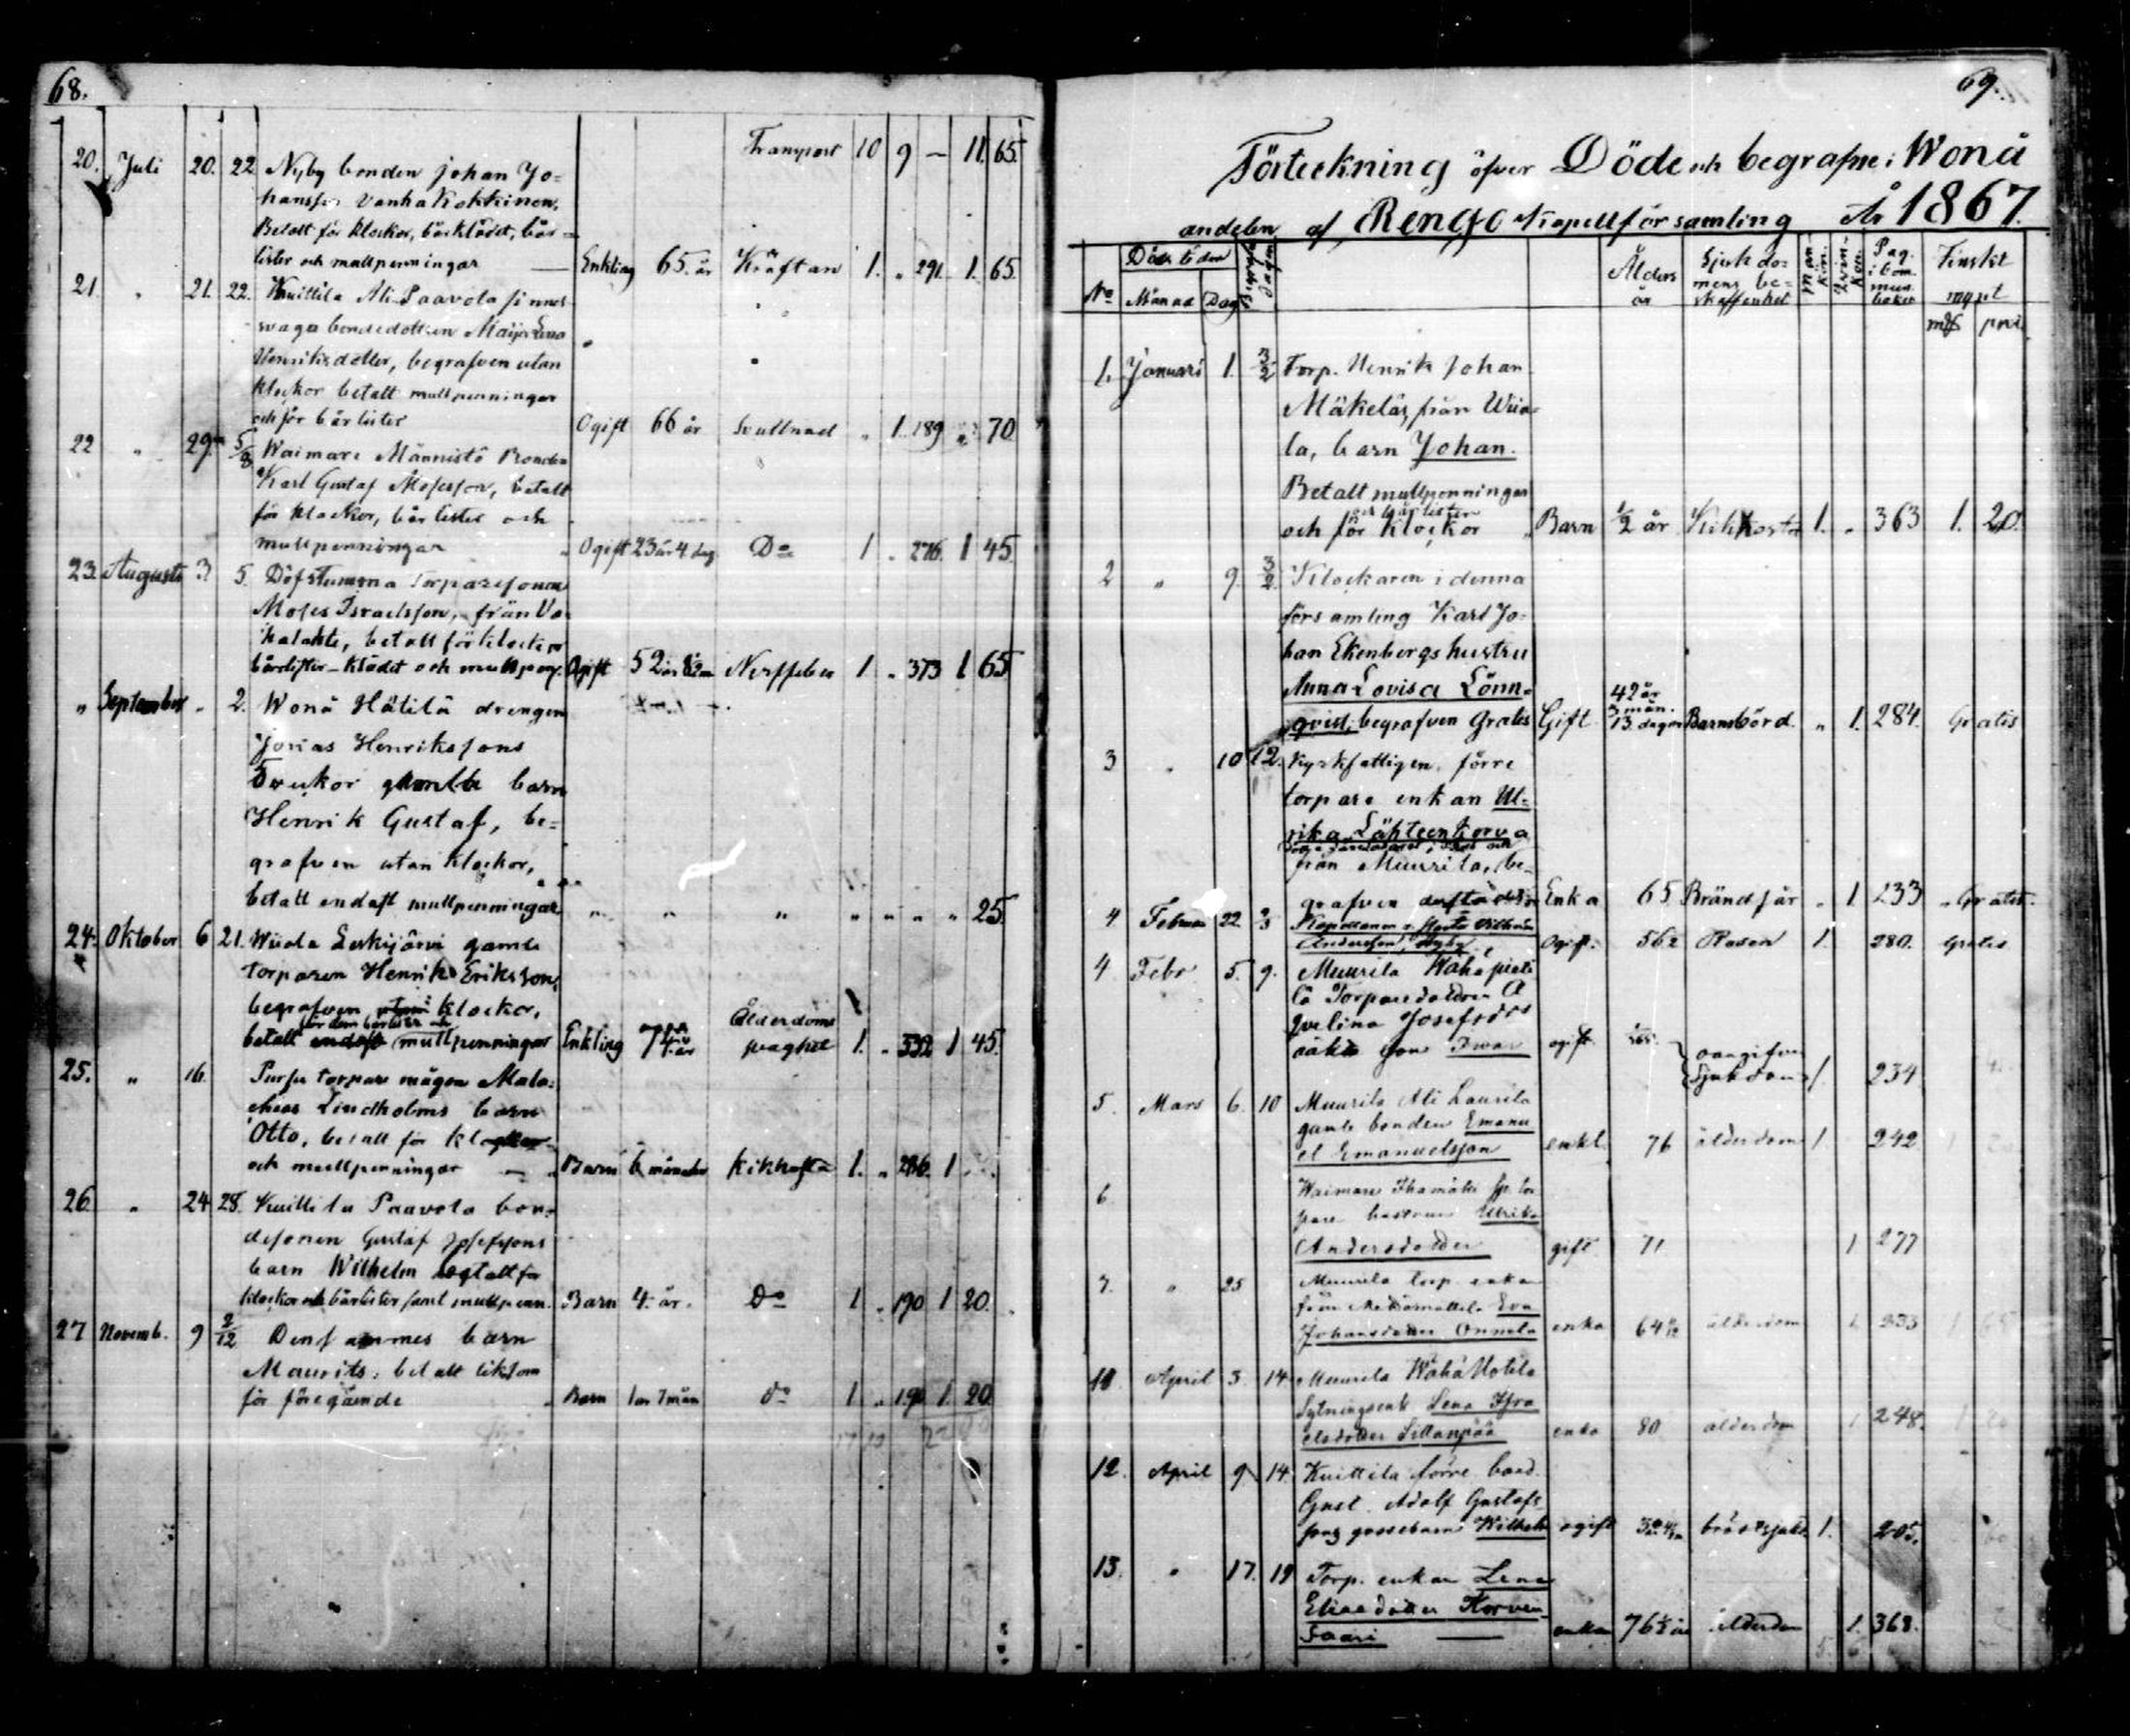 68.
Transport 10 9 — 11. 65.
20. Juli 20. 22. Nyby bonden Johan Jo=
hansson Vanha Kokkinen,
Betalt för klockor, bårklädet, bår=
lister och mullpenningar — Enkling 65. år Kräftan 1. " 291. 1. 65.
21. " 21. 22. Kuittila Ali Paavola sinnes=
svaga bondedottren Maija Lena
Henriksdotter, begrafven utan
klockor betalt mullpenningar
och för bårlister Ogift 66 år Svullnad " 1. 189 " 70
22 " 29. 5/8 Waimare Männistö Bonden
Karl Gustaf Mosesson, betalt
för klockor, bårlister och
mullpenningar " Ogift 23 år 4 dag. Do 1 " 276. 1 45.
23. Augusti 3. 5. Döfstumma Torparesonen
Moses Israelsson, från Va=
halahti, betalt för klockor
bårlister – klädet och mullpeng. Ogift 52 år Nerffeber 1 " 373 1 65
" September " 2. Wonå Hätilä drengen
Jonas Henrikssons
barn
Henrik Gustaf, be=
grafven utan klockor,
betalt endast mullpenningar " " " " " " " 25.
24. Oktober 6 21. gamle
torparen Henrik Eriksson,
begrafven klockor,
för dem bårlister och
betalt mullpenningar Enkling år Ålderdoms 1. " 332 1 45.
25. " 16. torpare mågen Mala=
chias Lindholms barn
Otto, betalt för klockor
och mullpenningar — " Barn 6 månader kikhosta 1. " 286. 1
26. " 24 28. Kuittila Paavola bon=
desonen Gustaf Josefssons
barn Wilhelm betalt för
klockor och bårlister samt mullpenn. Barn 4. år. Do 1 " 190 1 20.
27 Novemb. 9 2/12 Densammes barn
Maurits, betalt liksom
för föregående " Barn 1 år 7 mån do 1 " 190 1. 20
69.
Förteckning öfver Döde och begrafne i Wonå
andelen af Rengo Kapellförsamling År 1867.
Död tiden
No Månad Dag Begrafn. dagen Ålders år Sjukdo=mens be=skaffenhet Mankön. Qvinkön. Pag. i kommun. boken Finskt mynt
mk pni.
1. Januari 1. 3/2 Torp. Henrik Johan
Mäkeläs, från Wiia=
la, barn Johan.
Betalt mullpenningar
och bårlister
och för klockor " Barn 1/2 år Kikhosta 1. " 363 1. 20.
2 " 9. 3/2 Klockaren i denna
församling Karl Jo=
han Ekenbergs hustru
Anna Lovisa Lönn=
qvist, begrafven Gratis Gift 42 år 3 mån. 13 dagar Barnsbörd. " 1. 284. Gratis
3 " 10 12. Kyrkfattigen, förre
torpare enkan Ul=
rika Lähteenkorva
från Muurila, be=
grafven Enka 65 Brändsår " 1. 233 " Gratis.
4 Februa 22. 3 Kapellanen
Andersson, Nyby Ogift. Rosen 1. 280. Gratis
4 Febr 5. 9. Muurila
Torparedottren A
qvelina Josefsdrs
oäkta son Iwar ogift oangifven
sjukdom 1. 234
5. Mars 6. 10 Muurila Ali Laurila
gamle bonden Emanu
el Emanuelsson enkl. 76 ålderdom 1. 242
6. Waimare
pare hustrun Ulrika
Andersdotter gift 71 1 277
7. " 25 Muurila torp. enkan
från Eva
Johansdotter Onnela enka 64 ålderdom 1. 233
10. April 3. 14 Muurila Wähä Uotila
Sytningsenk Lena Isra
elsdotter Sillanpää enka 80 ålderdom 1 248.
12. April 9. 14. Kuittila förre bond.
Gust. Adolf Gustafs
sons gossebarn Wilhelm ogift bröstsjukd. 1. 205.
13. " 17. 19 Torp. enkan Lena
Eliasdotter Korven=
saari — enkan 76 1/2 år ålderdom 1. 368.